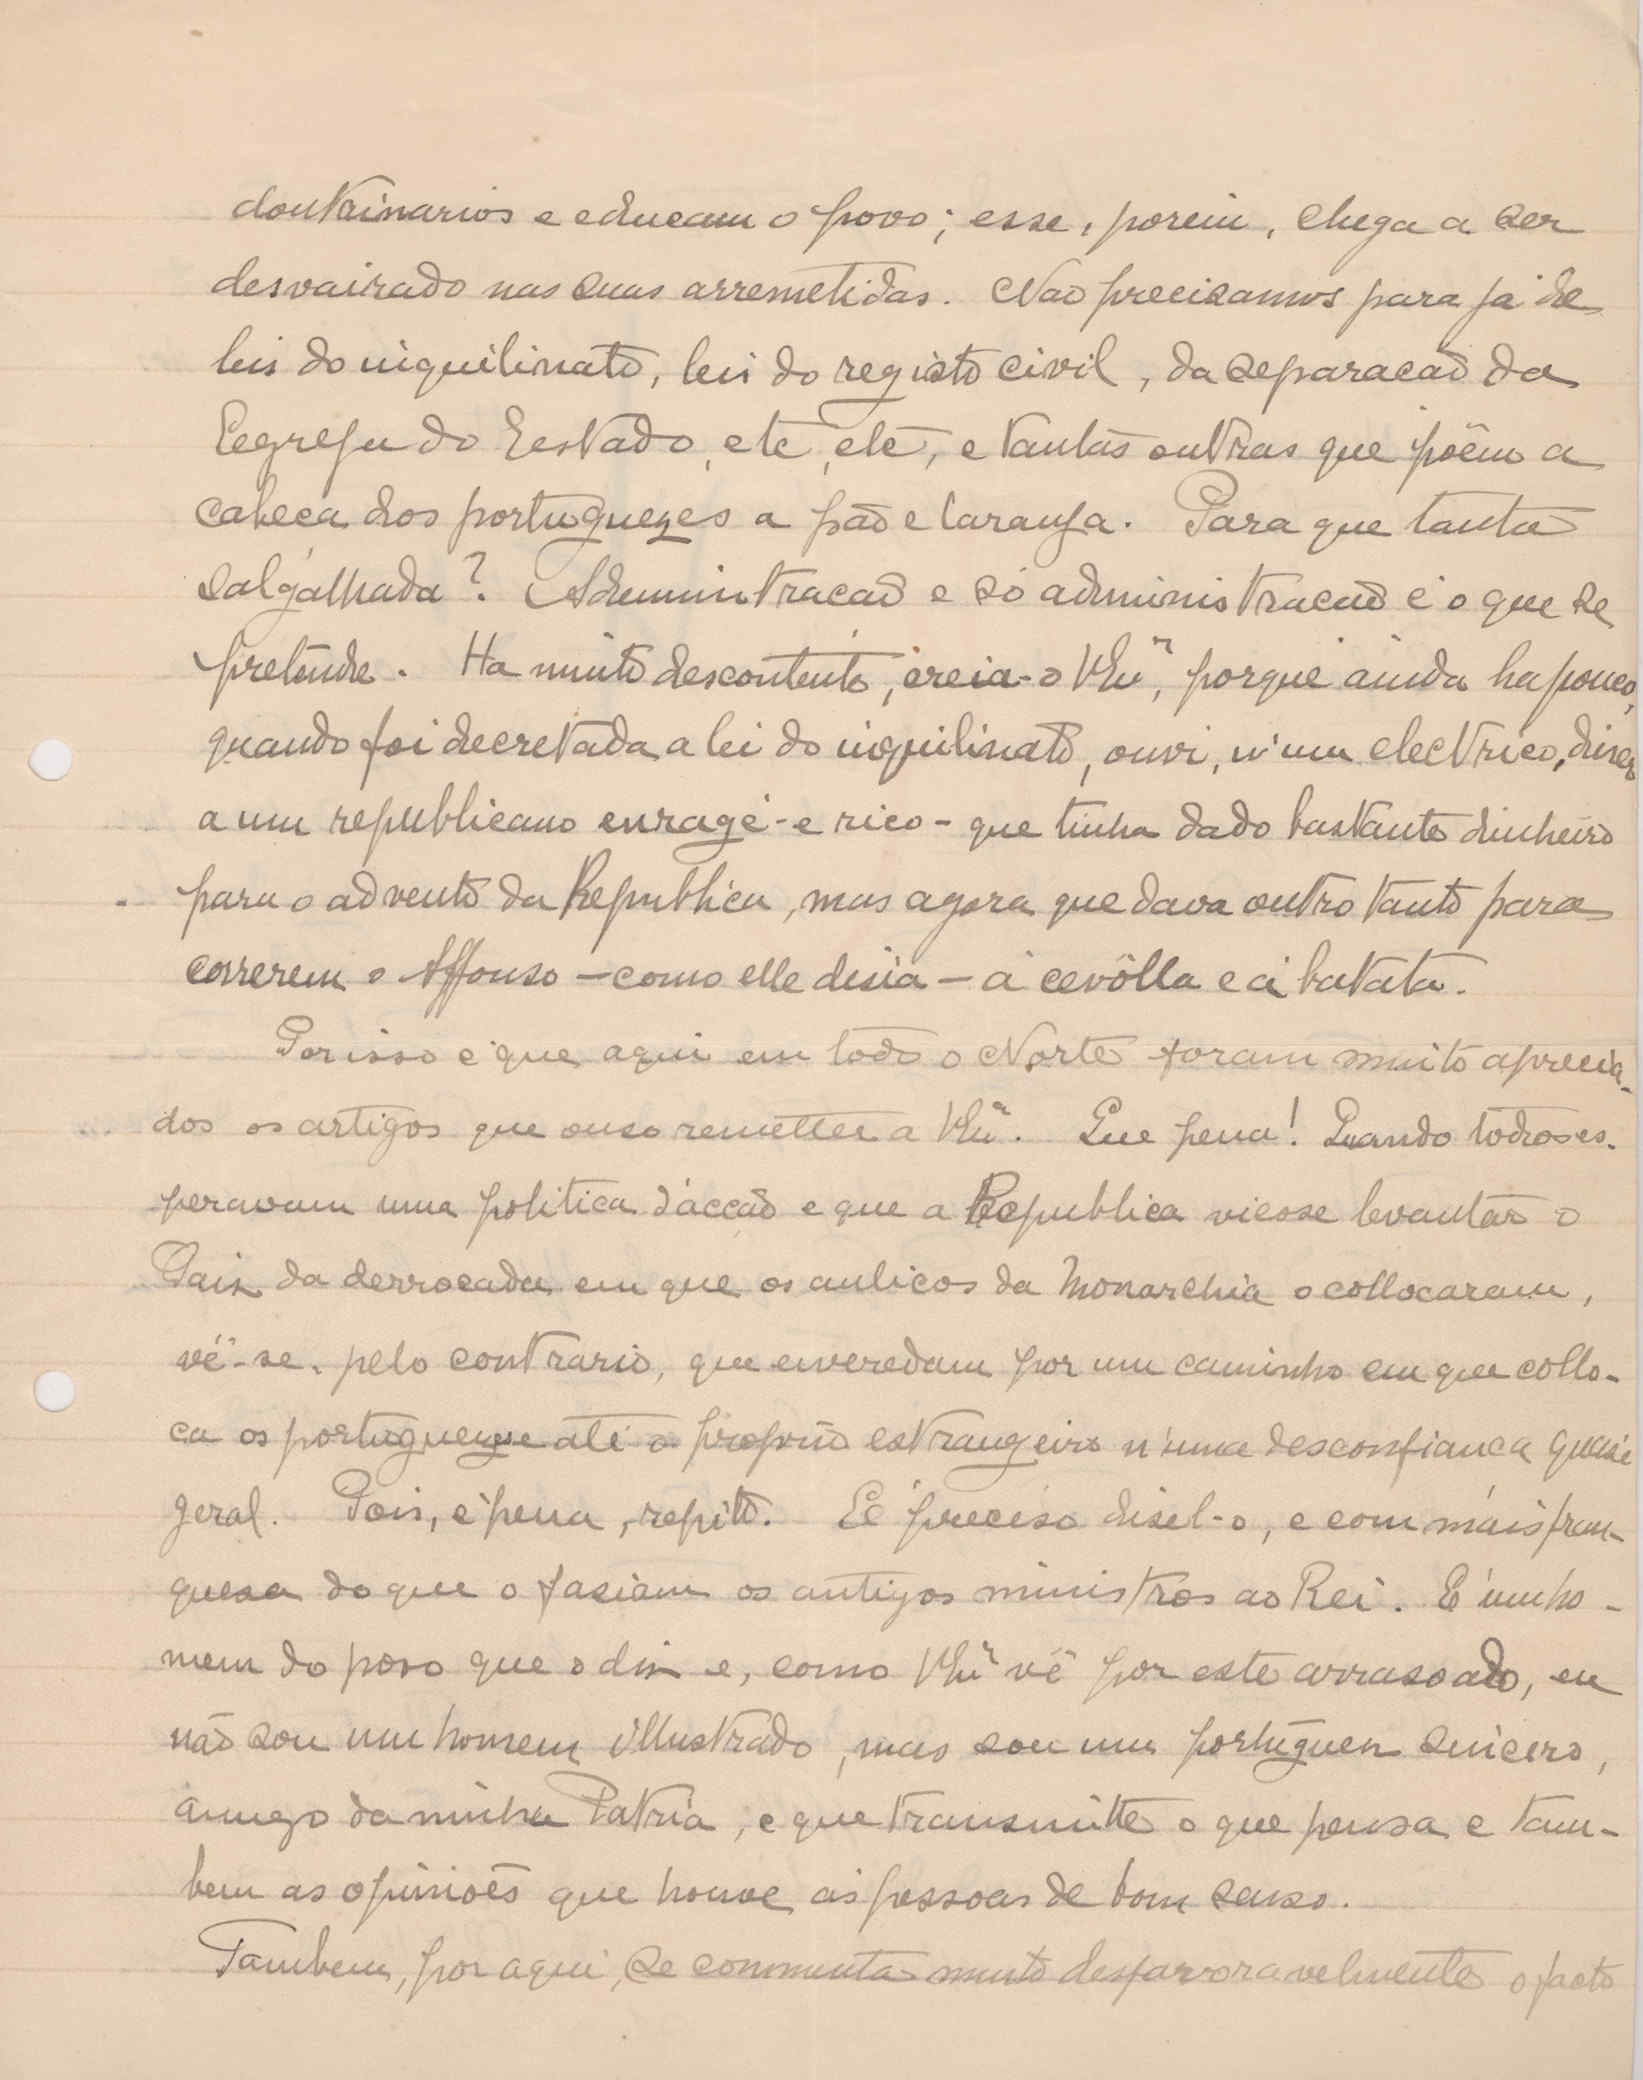 doutrinarios e educam o povo; esse, porem, chega a ser
desvairado nas suas arremetidas. Não precisamos para já de
leis do inquilinato, leis do registo civil, da separacaõ da
Eegreja do Eestado, etc, etc, e tantas outras que põem a
cabeca dos portuguezes a pão e laranja. Para que tanta
salgalhada? Admnintracaõ e só administracaõ é o que se
pretende. Ha muito descontente, creia-o VEx.ª, porque ainda ha pouco,
quando foi decretada a lei do inquilinato, ouvi, n'um electrico, diser
a um republicano enragé - e rico - que tinha dado bastante dinheiro
para o advento da Republica, mas agora que dava outro tanto para
correrem o Affonso - como elle disia - á cevôlla e á batata.
Por isso é que aqui em todo o Norte foram muito aprecia-
dos os artigos que ouso remetter a VEx.ª. Que pena! Quando todos es-
peravam uma politica d'accaõ e que a Republica viesse levantar o
Pais da derrocada em que os aulicos da Monarchia o collocaram,
vê-se, pelo contrario, que enveredam por um caminho em que collo-
ca os portugueses e até o proprio estrangeiro n'uma desconfianca quasi
geral. Pois, é pena, repito. Eé preciso disel-o, e com mais fran-
quesa do que o fasiam os antigos ministros ao Rei. É um ho-
mem do povo que o dis e, como VEx.ª vê por este arrasoado, eu
não sou um homem illustrado, mas sou um portuguez sincero,
amigo da minha Patria, e que transmitte o que pensa e tam-
bem as opinioẽs que houve ás pessoas de bom senso.
Tambem, por aqui, se commenta muito desfavoravelmente o facto